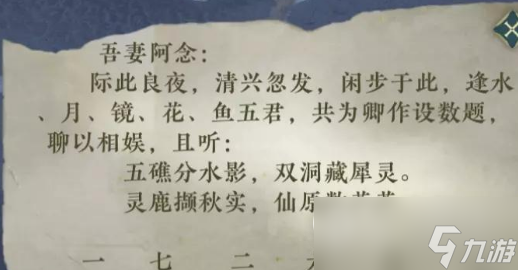 吾妻阿念：
际此良夜，清兴忽发，闲步于此，逢水
、月、镜、花、鱼五君，共为卿作设数题，
聊以相娱，且听：
五礁分水影，双洞藏犀灵。
灵鹿撷秋实，仙原数
一 七 二
九游